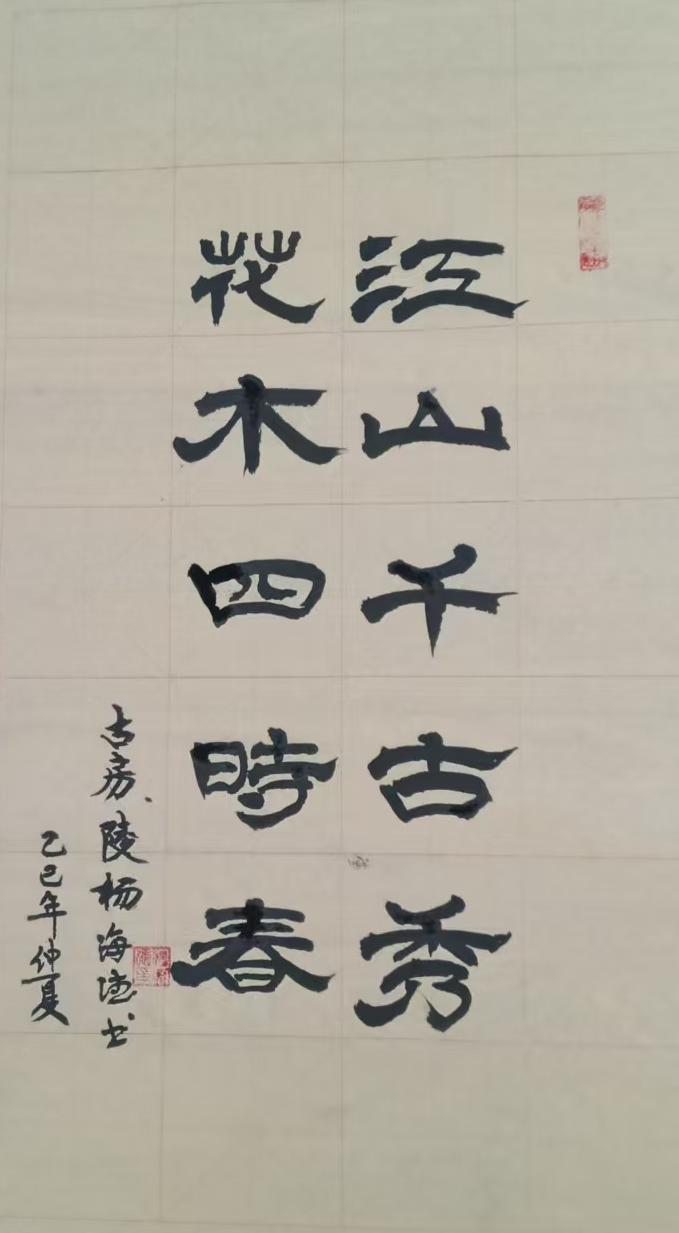 江山千古秀
花木四時春
古房陵杨海德书
乙巳年仲夏